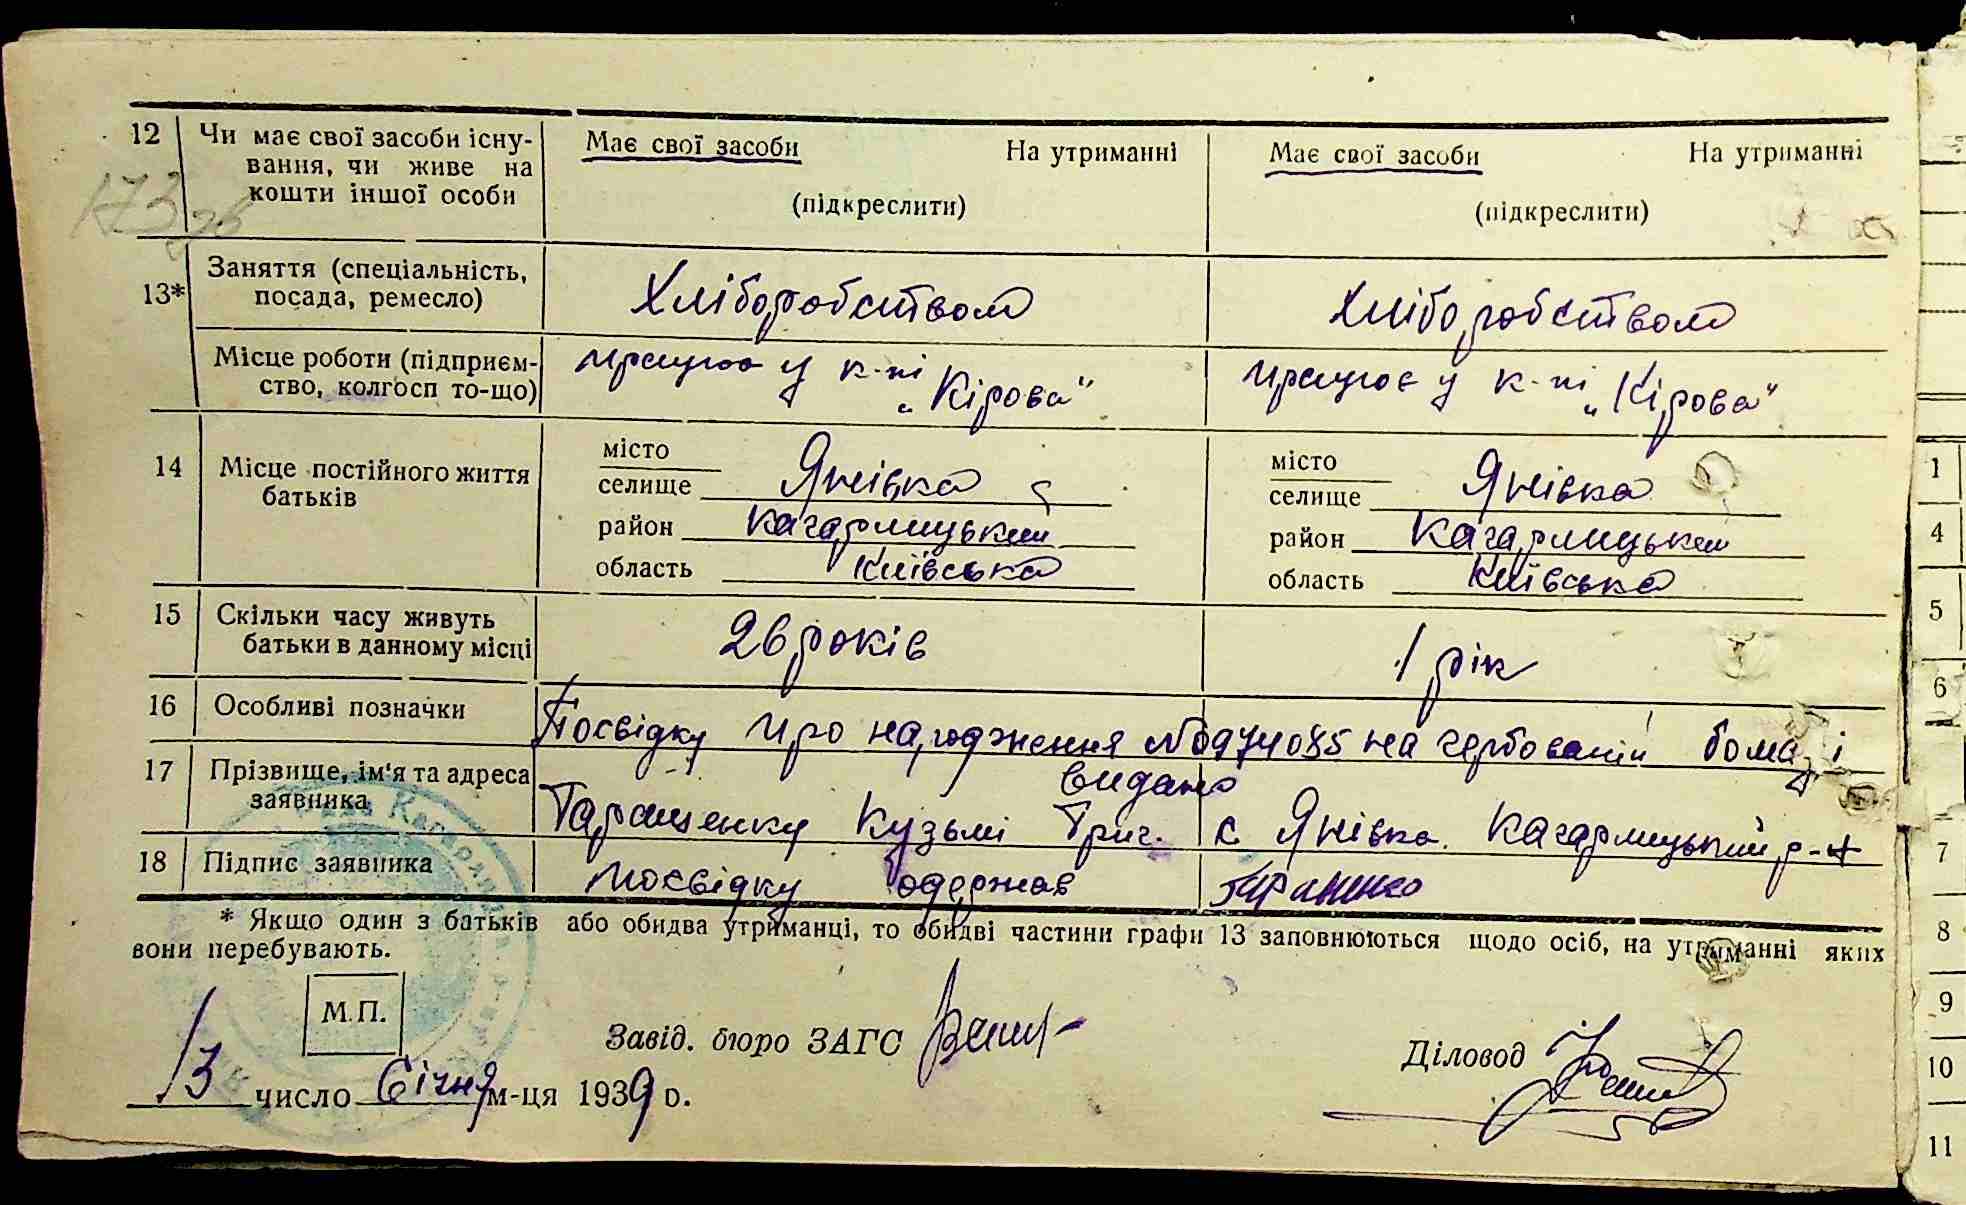 12 Чи має свої засоби існу-
вання, чи живе на
кошти іншої особи
Має свої засоби На утриманні
(підкреслити)
Має свої засоби На утриманні
(підкреслити)
13* Заняття (спеціальність,
посада, ремесло)
Хліборобством
Хліборобством
Місце роботи (підприєм-
ство, колгосп то-що)
працює у к-пі
„Кірова"
працює у к-пі
„Кірова"
14 Місце постійного життя
батьків
місто
селище Янівка
район Кагарлицький
область Київська
місто
селище Янівка
район Кагарлицький
область Київська
15 Скільки часу живуть
батьки в данному місці
26 років
1 рік
16 Особливі позначки
Посвідку про народження № 0974085 на гербованій бомазі
видано
17 Прізвище, ім'я та адреса
заявника
Таращенку Кузьмі Григ. с Янівка. Кагарлицький р-н
18 Підпис заявника
посвідку одержав
* Якщо один з батьків або обидва утриманці, то обидві частини графи 13 заповнюються щодо осіб, на утриманні яких
вони перебувають.
М.П.
Завід. бюро ЗАГС
Діловод
13 число Січня м-ця 1939 р.
1
4
5
6
7
8
9
10
11